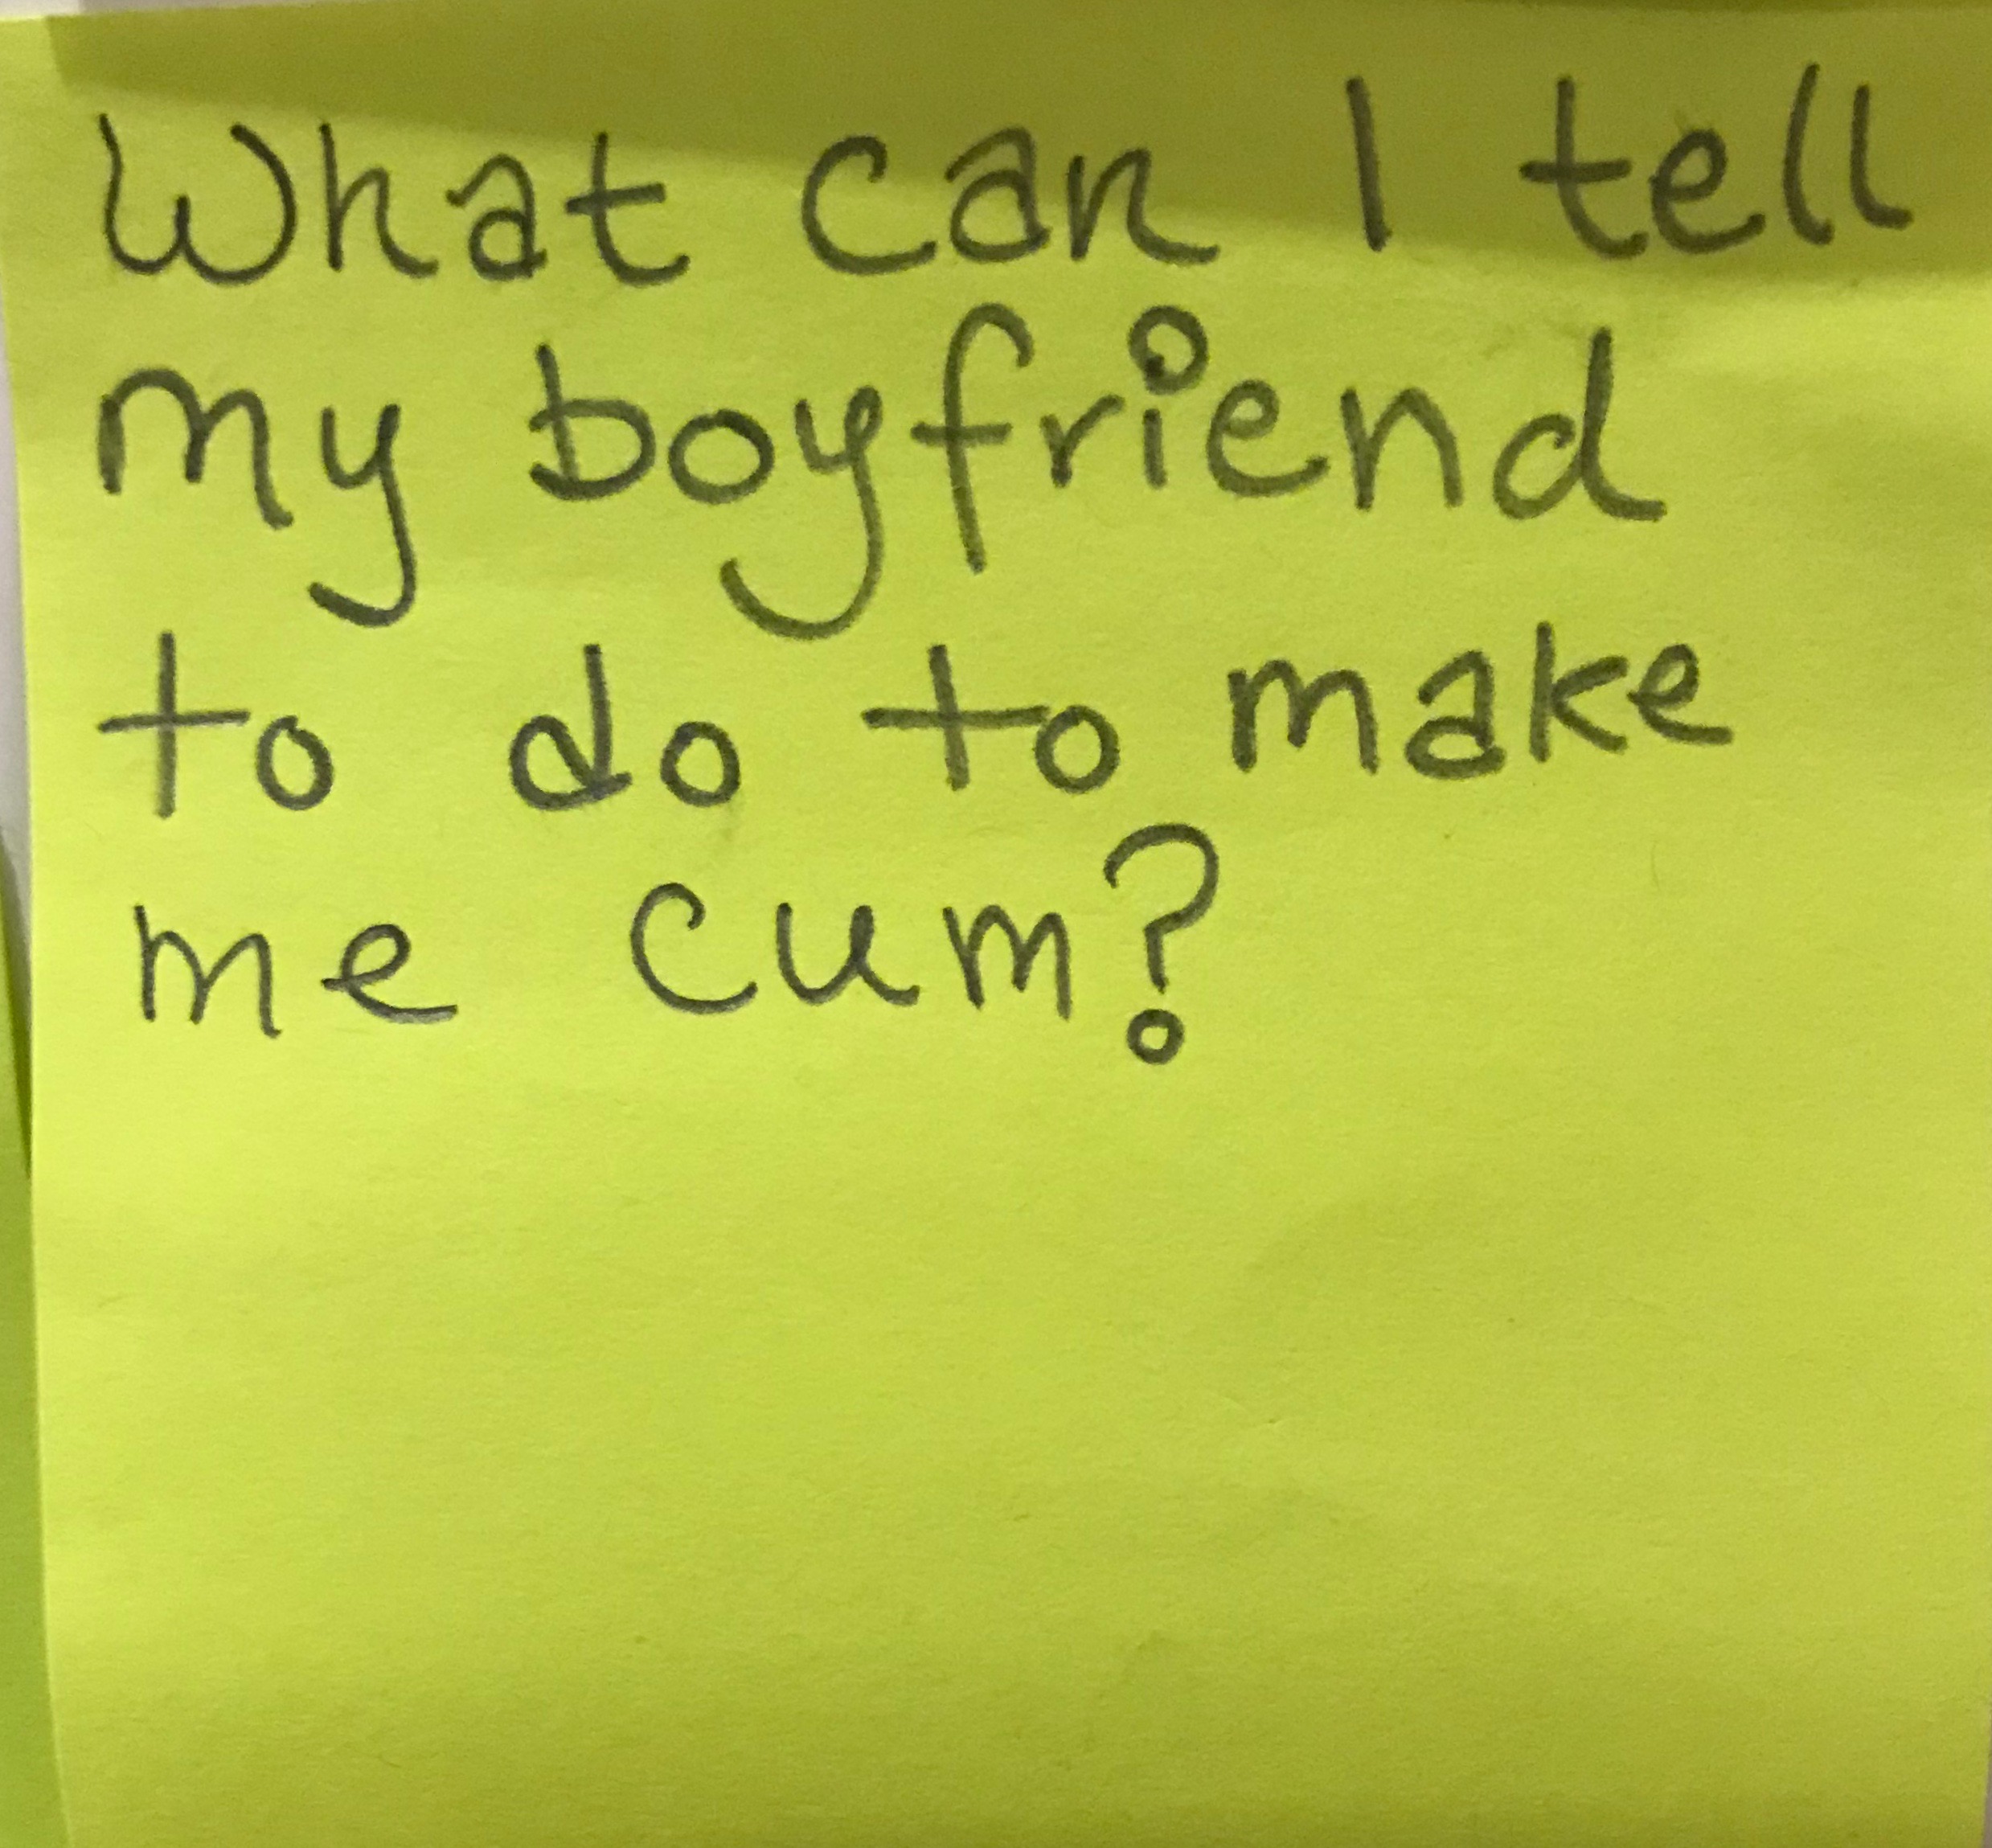 What can I tell
my boyfriend
to do to make
me cum?